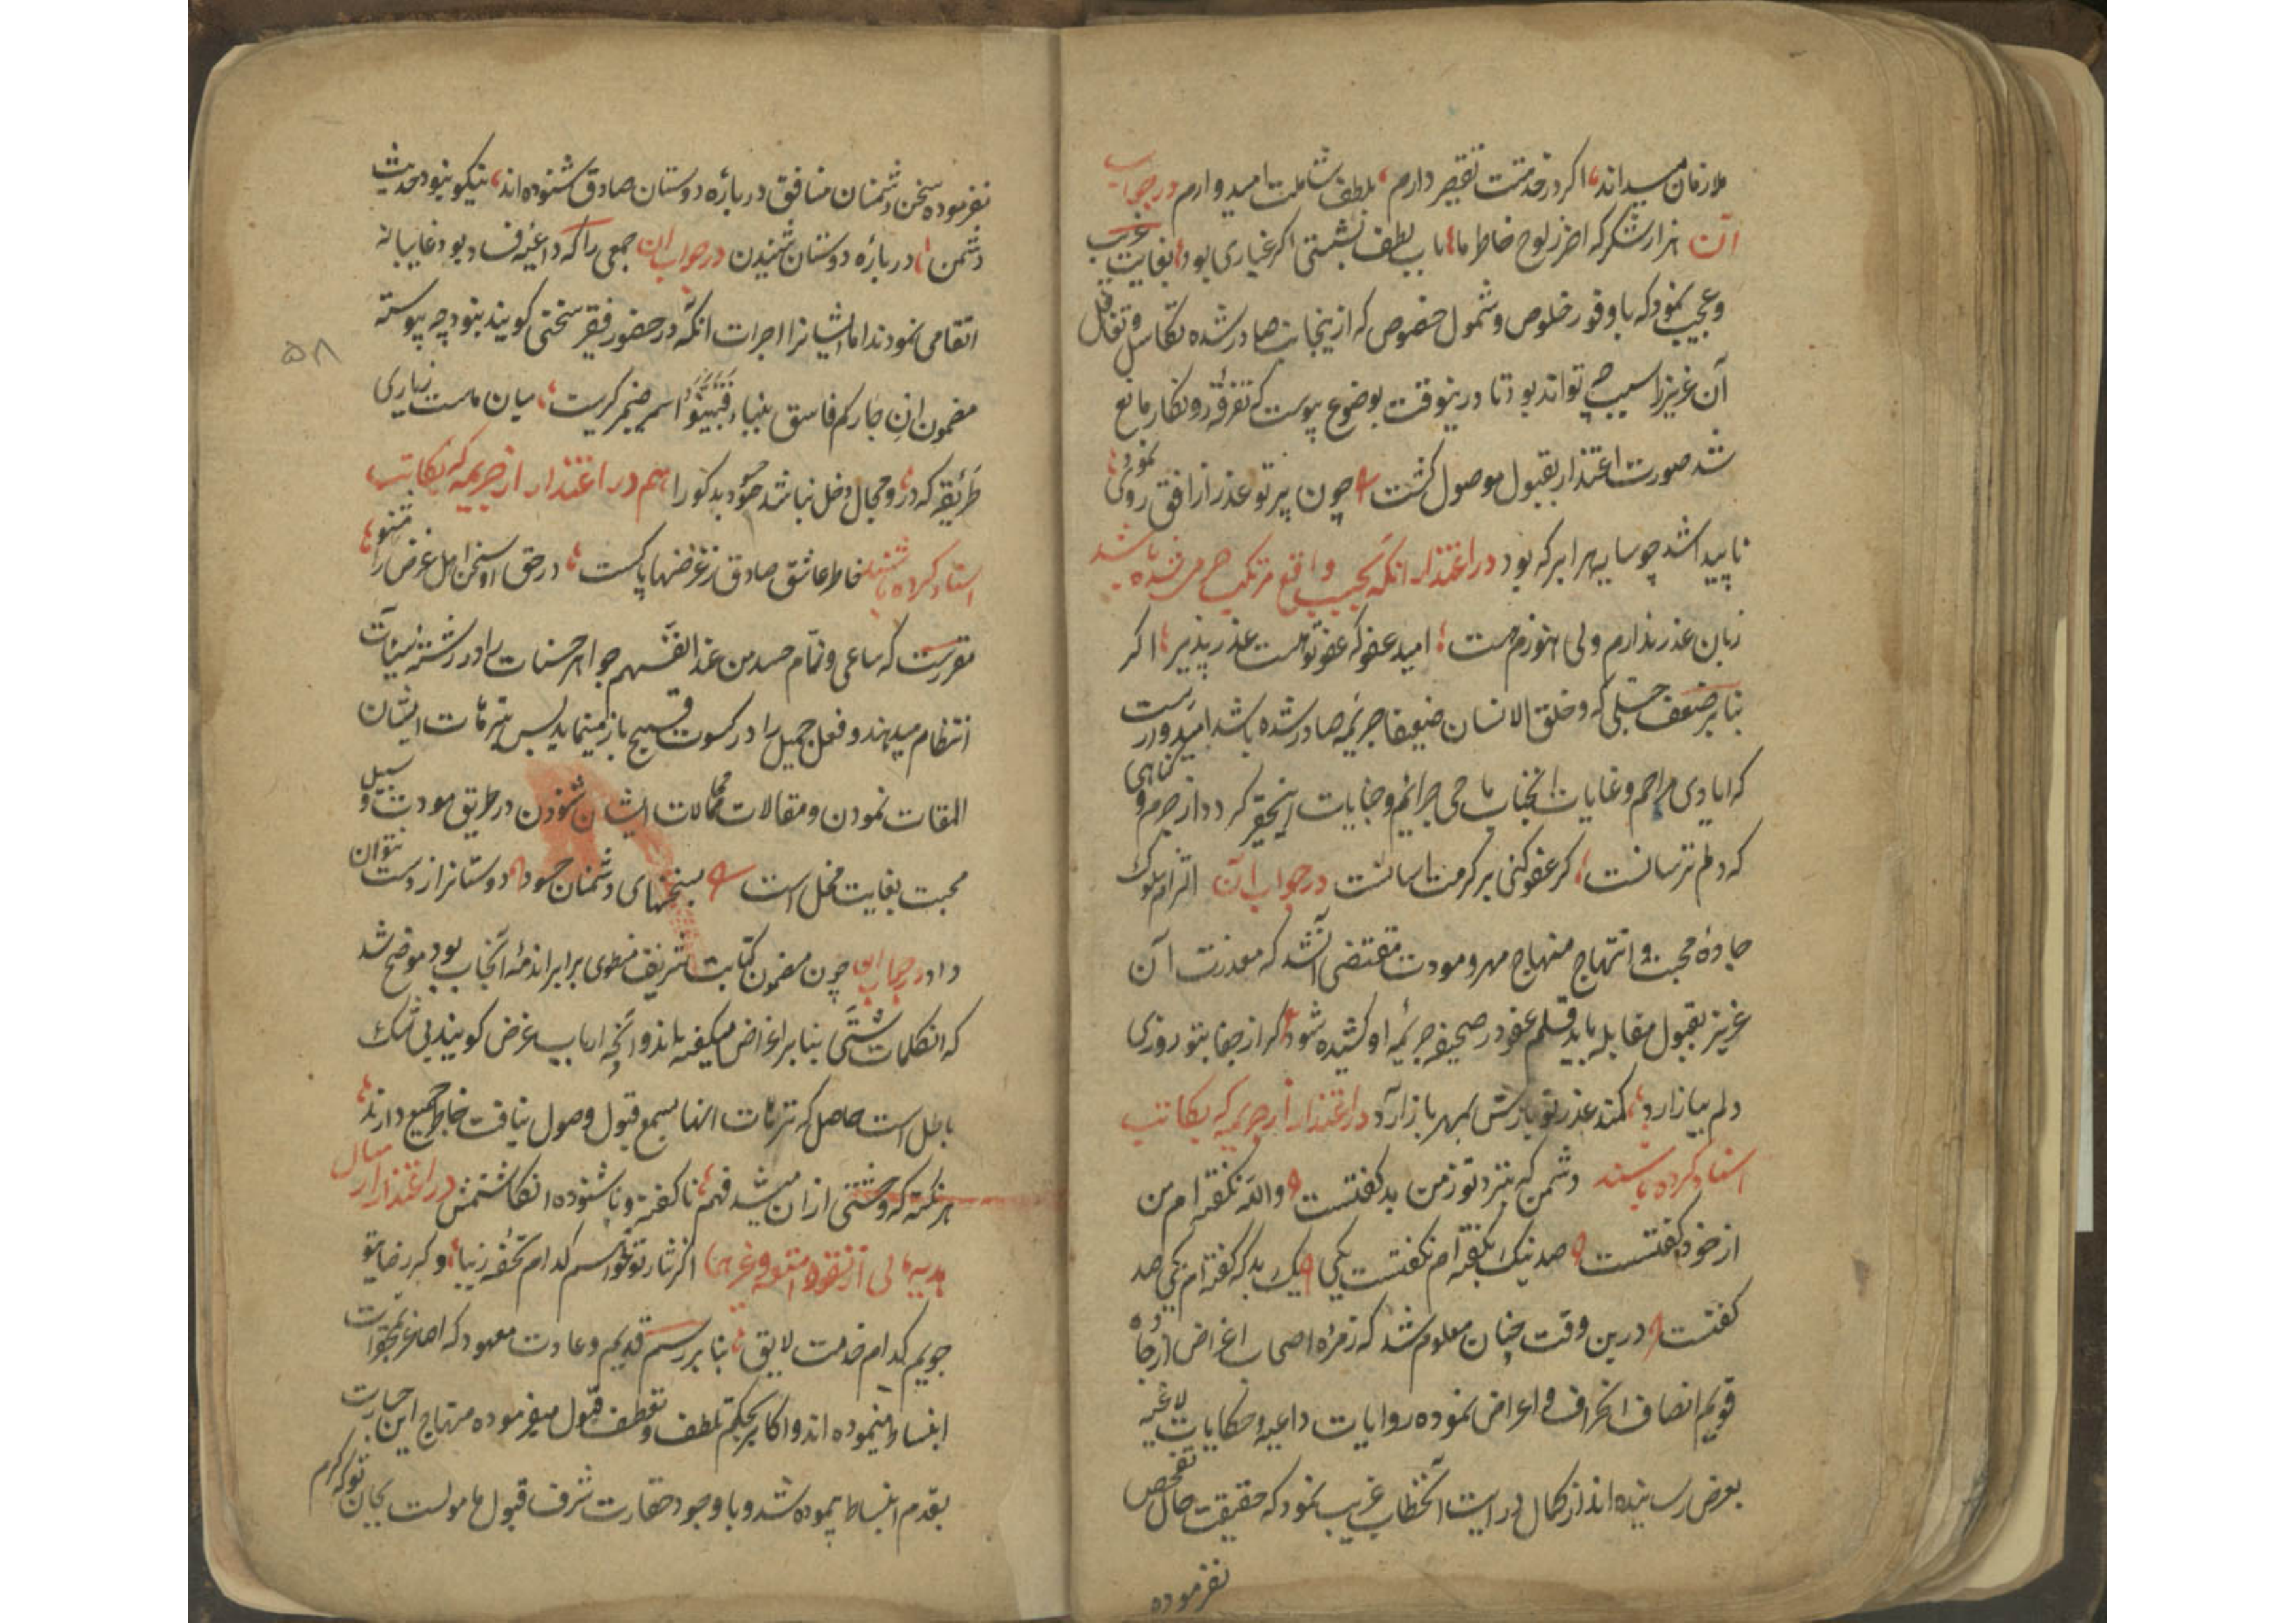 ملازمان میداند اگر در خدمتت تقصیر دارم بلطف شاملت امیدوارم در جواب
آن هزار شکر که اخر ز لوح خاطر ما بآب لطف بشستی اگر غباری بود بغایت غریب
و عجیب نمود که با وفور خلوص و شمول خصوص که ازینجانب صادر شده تکاسل و تغافل
آن عزیز را سبب چه تواند بود تا درینوقت بوضوح پیوست که تفرقه روزکار مانع
شد صورت اعتذار بقبول موصول کشت چون پرتو عذر از افق روی نمود
ناپیدا شد چو سایه هر ابر که بود در اعتذار انکه بحسب واقع مرتکب جرمی شده باشد
زبان عذر ندارم ولی هنوزم هست امید عفو که عفو تو هست عذر پذیر اگر
بنا بر ضعف جبلی که و خلق الانسان ضعیفا جریمه صادر شده باشد امیدوارست
که ایادی مراحم و عنایات انجناب ماحی جرائم و جنایات اینحقیر کردد از جرم و گناهی
که دلم ترسانست گر عفو کنی بر کرمت اسانست در جواب آن التزام سلوک
جادهٔ محبت و انتهاج منهاج مهر و مودت مقتضی آنشد که معذرت آن
عزیز بقبول مقابله یابد قلم عفو در صحیفه جریمهٔ او کشیده شود گر از جفا بتو روزی
دلم بیازارد کمند عذر تو بازش بمهر باز آرد در اعتذار از جریمه که بکاتب
اسناد کرده باشند دشمن که بنزد تو ز من بد کفتست والله نکفته‌ام من
از خود کفتست صد نیک بکفته‌ام نکفتست یکی یک بد که کفته‌ام یکی صد
کفتست درین وقت چنان معلوم شد که زمرهٔ اصحاب اغراض از جادهٔ
قویم انصاف انحراف و اعراض نموده روایات داعیه و حکایات لاغیه
بعرض رسانیده اند از کمال درایت آنخطاب غریب نمود که حقیقت حال تفحص
نفرموده
نفرموده سخن دشمنان منافق در بارهٔ دوستان صادق شنوده اند نیکو نبود حدیث
دشمن در بارهٔ دوستان شنیدن در جواب ان جمعی را که داعیهٔ فساد بود غایبانه
اتفاقی نمودند اما ایشانرا اجرات انکه در حضور فقیر سخنی کویند نبود چه پیوسته
مضمون ان جاءکم فاسق بنباء فتبینوا اسمیر ضمیر کریست میان ماست زیاری
طریقه که درو مجال دخل نباشد حسود بدکو را هم در اعتذار از جریمه که بکاتب
اسناد کرده باشند خاطر عاشق صادق ز غرضها پاکست در حق او سخن اهل غرض را مشنو
مقررست که ساعی و نمام حسد من عند انفسهم جواهر حسنات را در رشته سیئات
انتظام میدهند و فعل جمیل را در کسوت قبیح باز مینماید پس بترهات ایشان
التفات نمودن و مقالات محالات ایشان شنودن در طریق مودت و سبیل
محبت بغایت مخل است بسخنهای دشمنان حسود دوستانرا ز دست نتوان
داد در جواب ان چون مضمون کتابت شریف منطوی بر ابراء ذمهٔ آنجناب بود موضح شد
که انکلمات شتی بنا بر اغراض میکفته باند و آنچه ارباب غرض کویند بی شک
باطل است حاصل که ترهات انها بسمع قبول وصول نیافت خاطر جمیع دارند
هر نکته که وحشتی از ان میشد فهم ناکفته و ناشنوده انکاشتمش در اعتذار ارسال
هدیه مالی از نقود امتعه و غیرها اگر نثار تو خواسم کدام تحفه زیبا و کر رضا تو
جویم کدام خدمت لایق بنا بر رسم قدیم و عادت معهود که اصاغر بحیرات
انبساط مینموده اند و اکابر بحکم تلطف و تعطف قبول میفرموده منهاج این جسارت
بقدم انبساط پیموده شد و با وجود حقارت شرف قبول مامولست بجان تو که کرم
۵۸